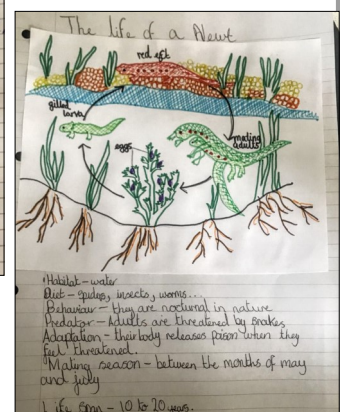 The life of a Newt
red eft
gilled larva
mating adults
eggs
Habitat - water
Diet - spiders, insects, worms...
Behaviour - they are nocturnal in nature
Predator - Adults are threatened by snakes
Adaptation - their body releases poison when they
feel threatened.
Mating season - between the months of may
and july
Life span - 10 to 20 years.